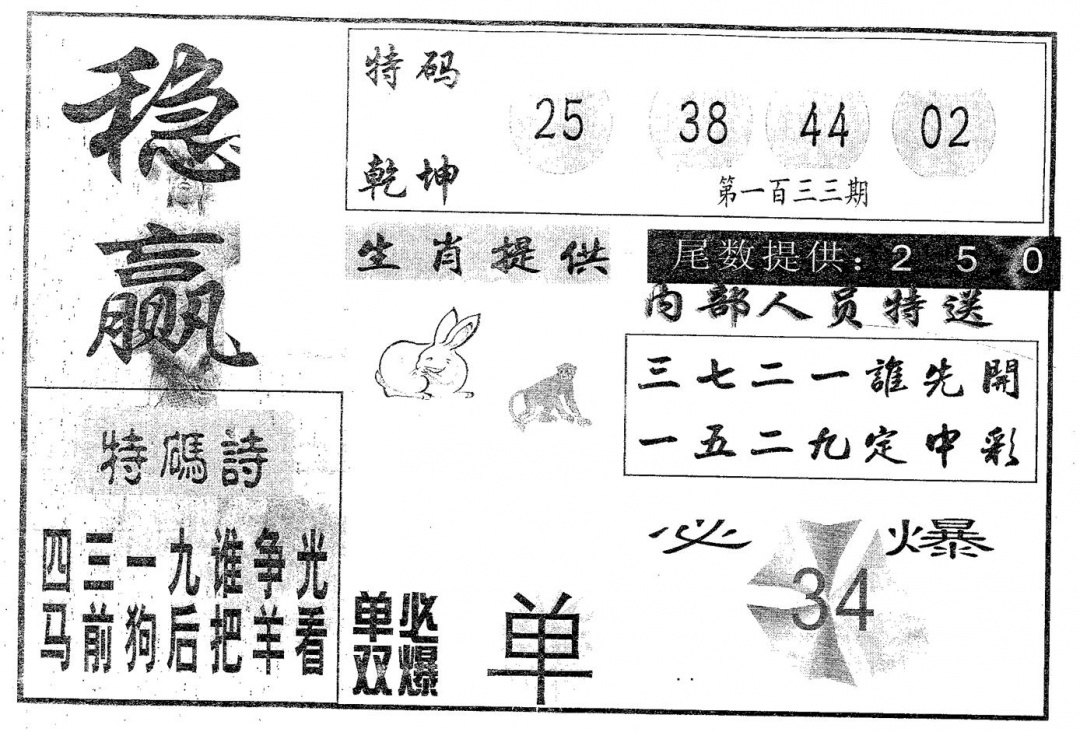 稳
赢
特码
乾坤
25 38 44 02
第一百三三期
生肖提供
尾数提供: 2 5 0
内部人员特送
三七二一誰先開
一五二九定中彩
特碼詩
四三一九谁争光
马前狗后把羊看
单双
必爆
单
必爆
34